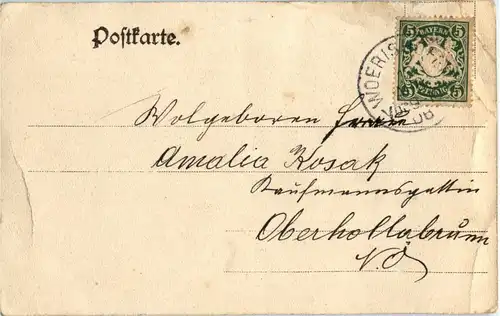 Postkarte.
5 BAYERN 5
5 PFENNIG 5
Wolgeboren
Amalia Kosak
Kaufmannsgattin
Oberhollabrunn
N.Ö